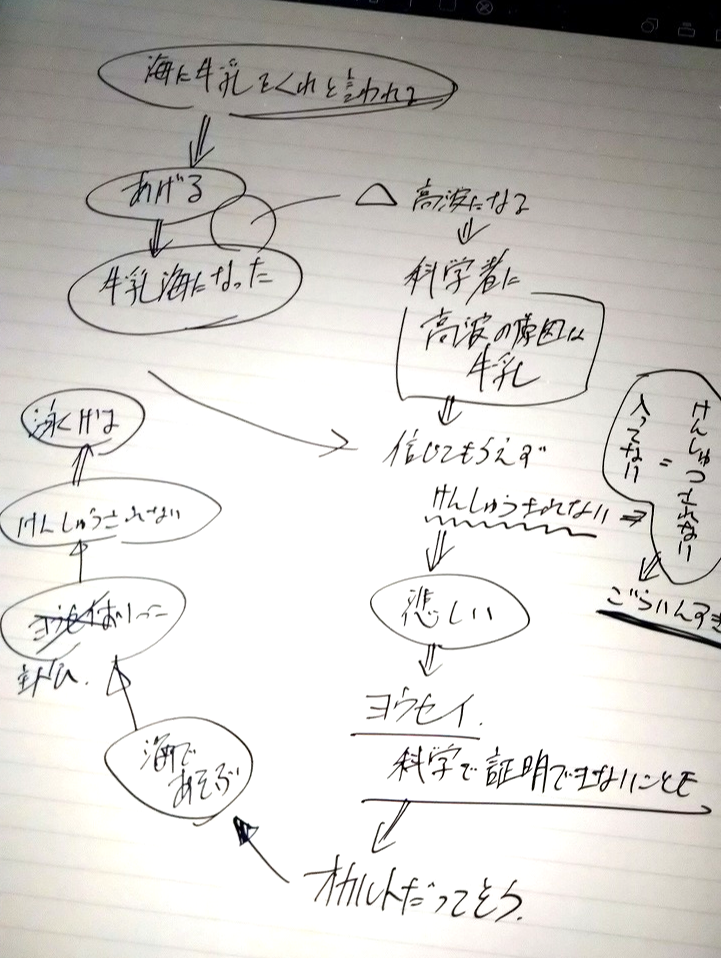 海に牛乳をくれと言われて
あげる
牛乳海になった
△ 高波になる
科学者に
高波の原因は
牛乳
信じてもらえず
けんしゅつされない
=
入ってない
けんしゅうされない ⇒
ごういんすぎ
悲しい
ヨウセイ.
科学で証明できないことを
オカルトだってそう.
海で
あそぶ
けんしゅうされない
泳げば